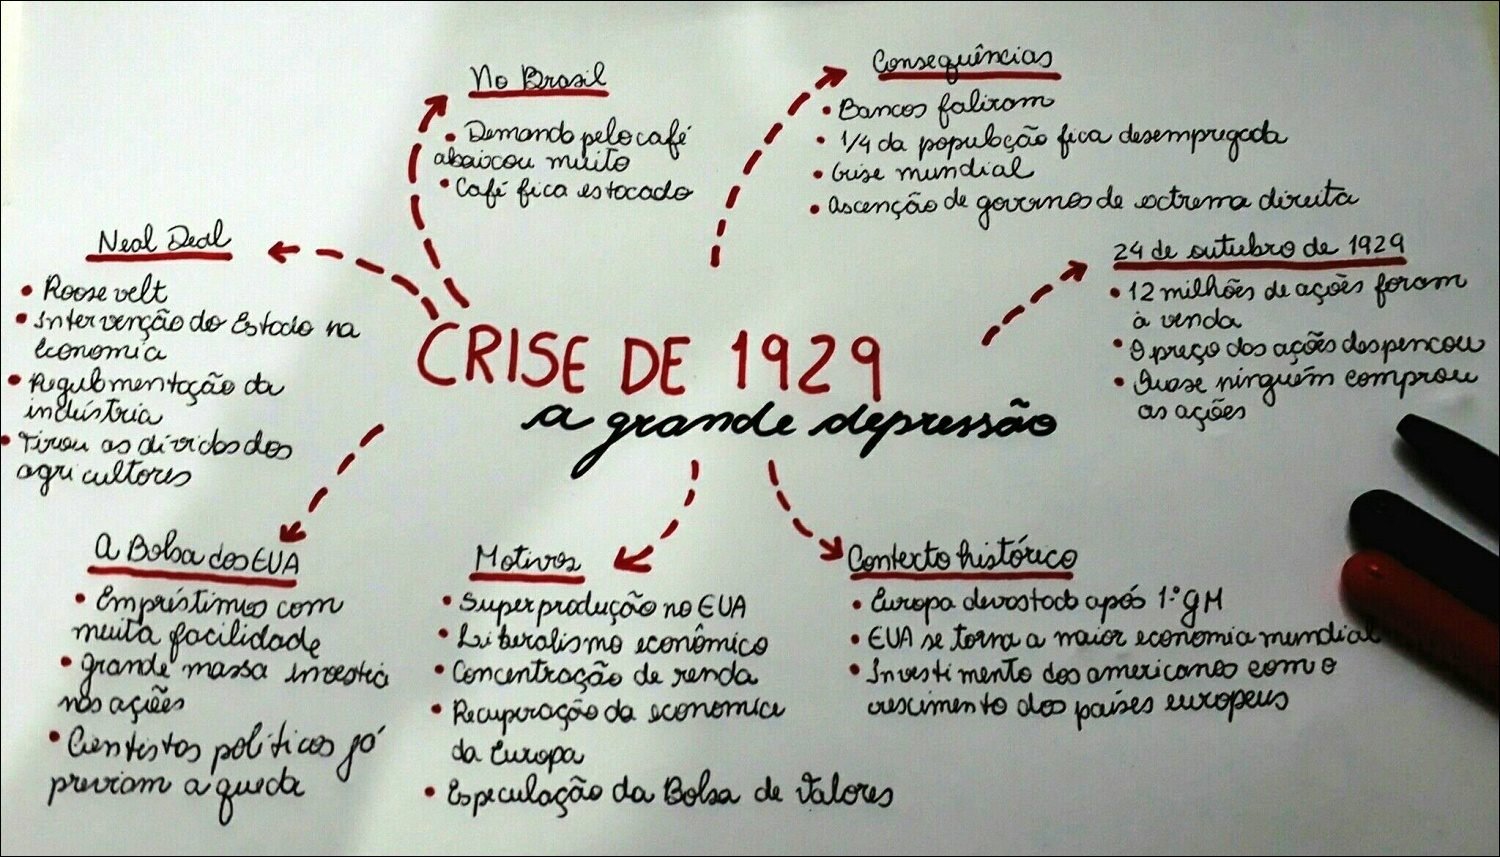 No Brasil
• Demanda pelo café
abaixou muito
• Café fica estocado
Consequências
• Bancos faliram
• 1/4 da população fica desempregada
• Crise mundial
• Ascenção de governos de extrema direita
Neal Deal
• Roosevelt
• Intervenção do Estado na
economia
• Regulamentação da
indústria
• Tirou as dívidas dos
agricultores
24 de outubro de 1929
• 12 milhões de ações foram
à venda
• O preço das ações despencou
• Quase ninguém comprou
as ações
CRISE DE 1929
a grande depressão
A Bolsa dos EUA
• Empréstimos com
muita facilidade
• Grande massa investia
nas ações
• Cientistas políticos já
previam a queda
Motivos
• Superprodução no EUA
• Liberalismo econômico
• Concentração de renda
• Recuperação da economia
da Europa
• Especulação da Bolsa de Valores
Contexto histórico
• Europa devastada após 1.ª GM
• EUA se torna a maior economia mundial
• Investimento dos americanos com o
crescimento dos países europeus